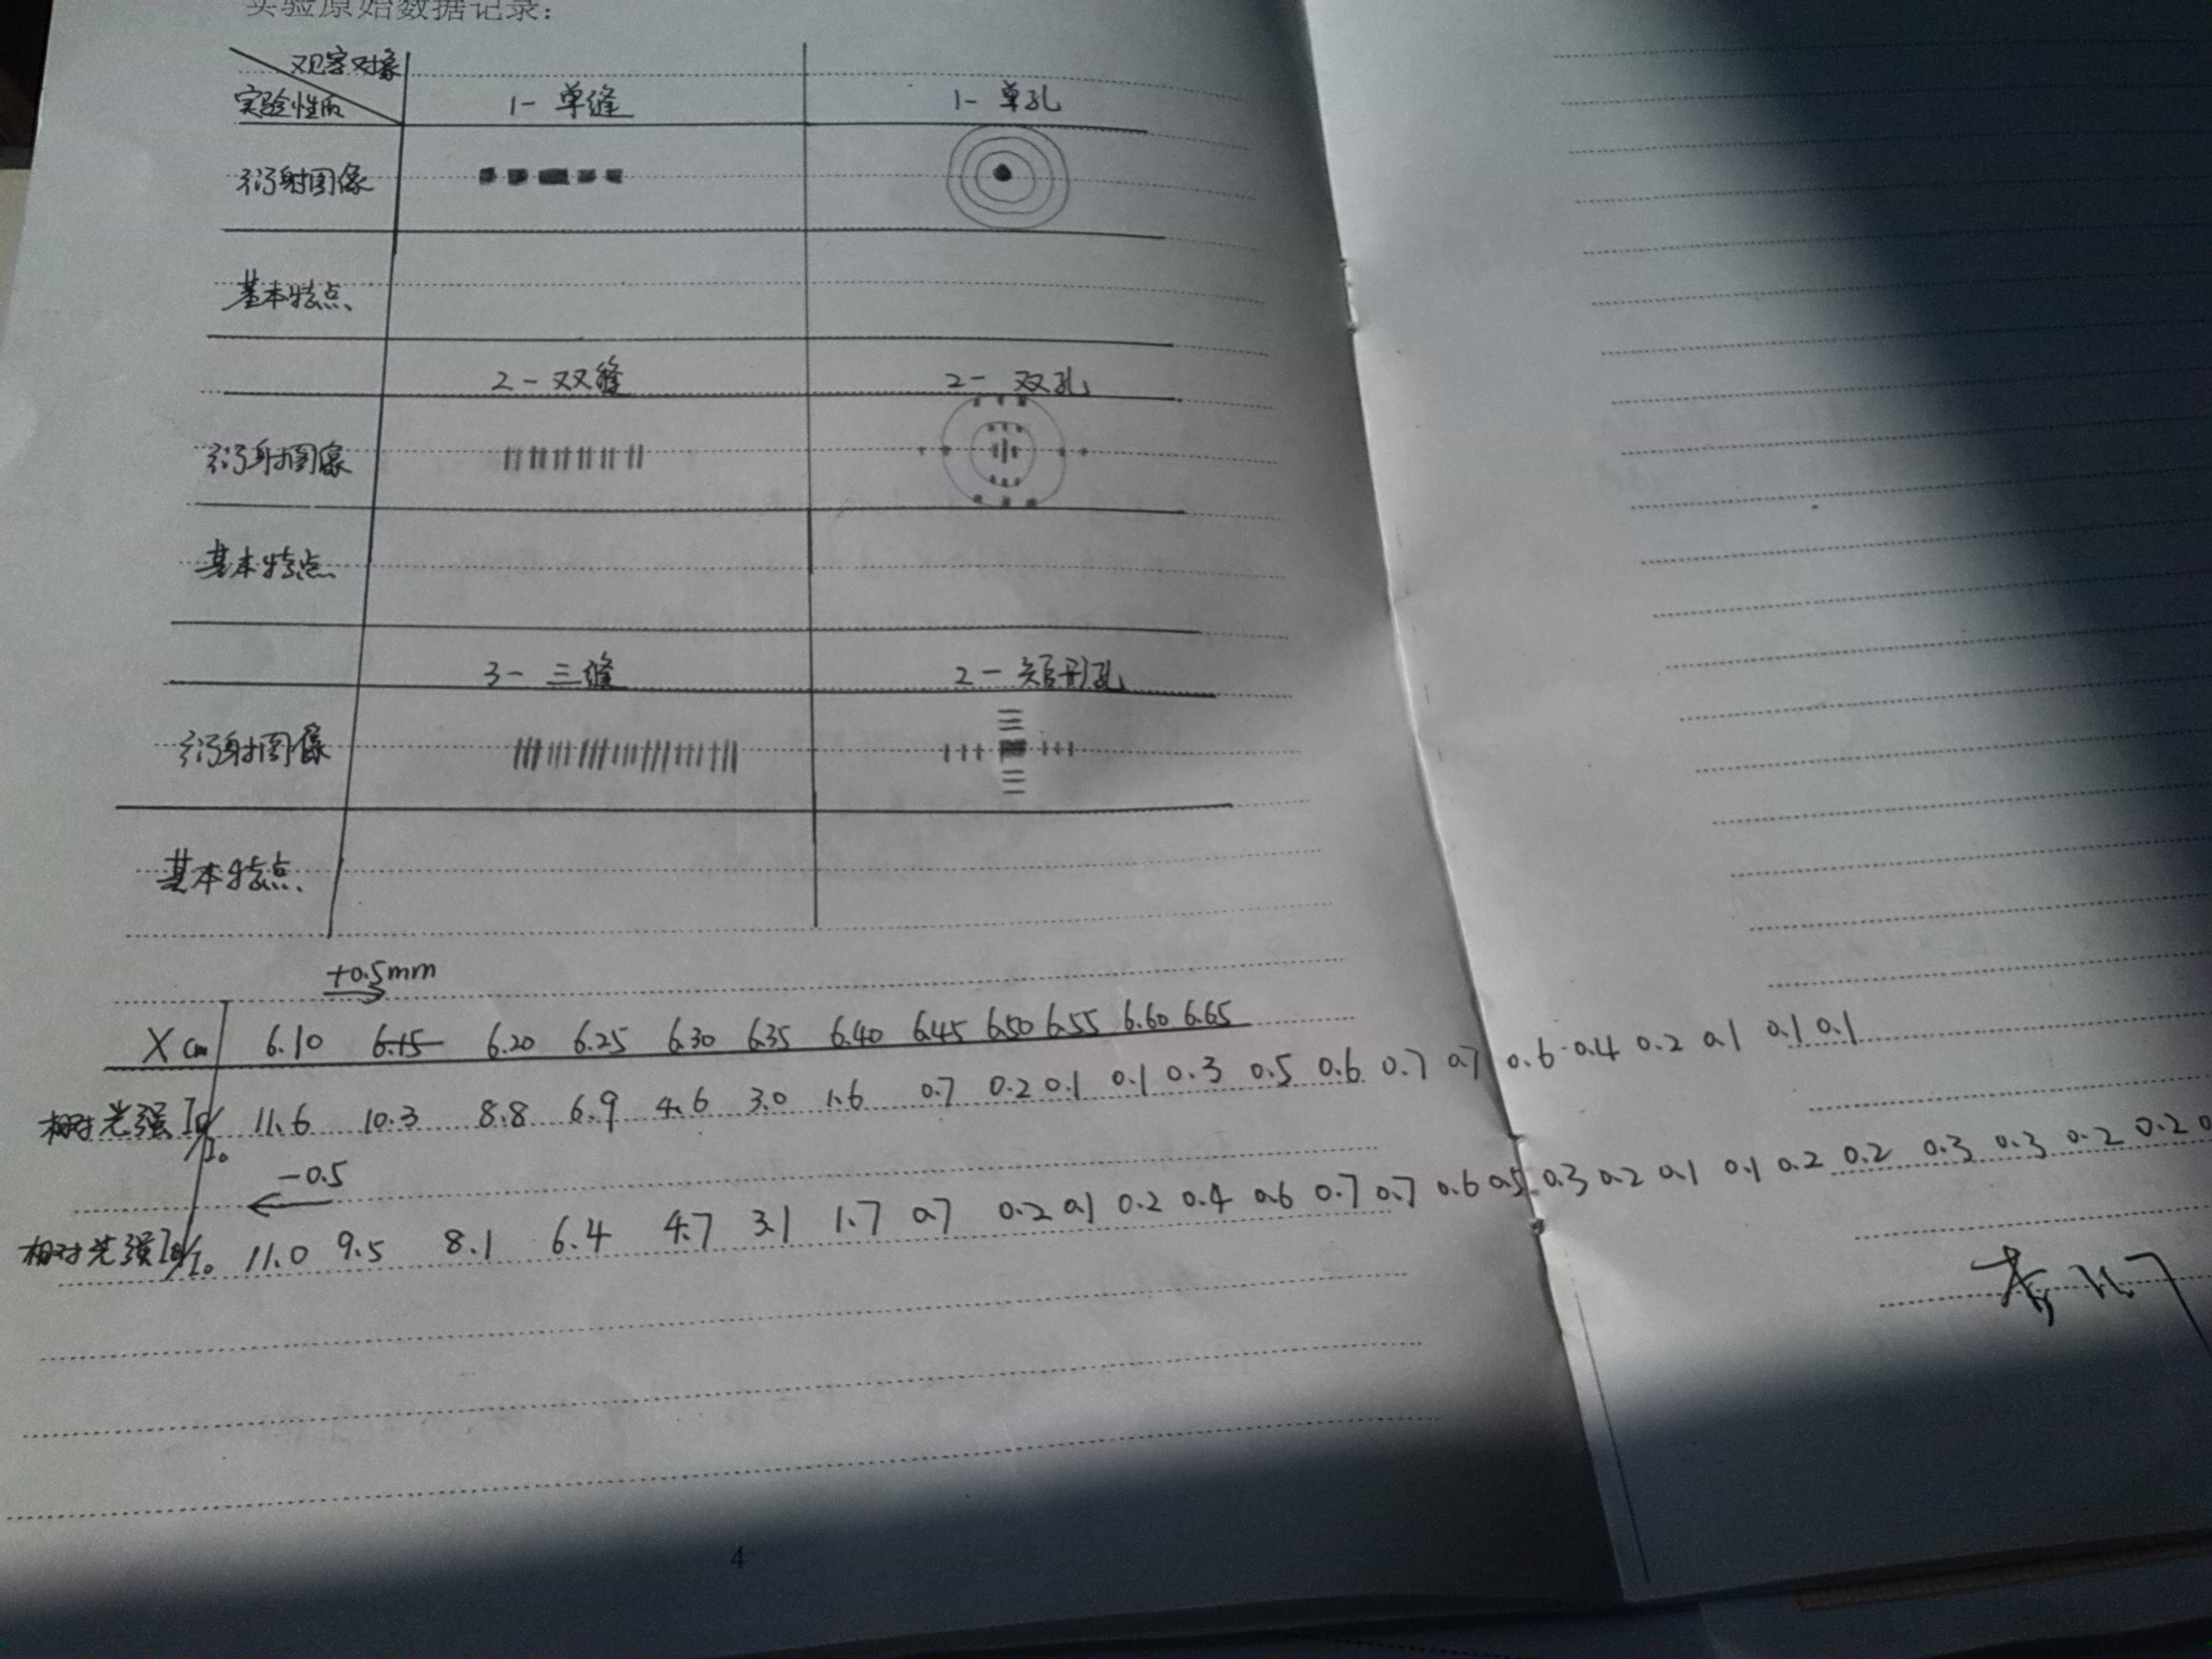 实验原始数据记录：
观察对象
实验性质 1- 单缝 1- 单孔
衍射图像
基本特点
2- 双缝 2- 双孔
衍射图像
基本特点
3- 三缝 2- 矩形孔
衍射图像
基本特点
+0.5mm
X cm 6.10 6.15 6.20 6.25 6.30 6.35 6.40 6.45 6.50 6.55 6.60 6.65
相对光强 Iθ/I₀ 11.6 10.3 8.8 6.9 4.6 3.0 1.6 0.7 0.2 0.1 0.1 0.3 0.5 0.6 0.7 0.7 0.6 0.4 0.2 0.1 0.1 0.1
-0.5
相对光强 Iθ/I₀ 11.0 9.5 8.1 6.4 4.7 3.1 1.7 0.7 0.2 0.1 0.2 0.4 0.6 0.7 0.7 0.6 0.5 0.3 0.2 0.1 0.1 0.2 0.2 0.3 0.3 0.2 0.2
4